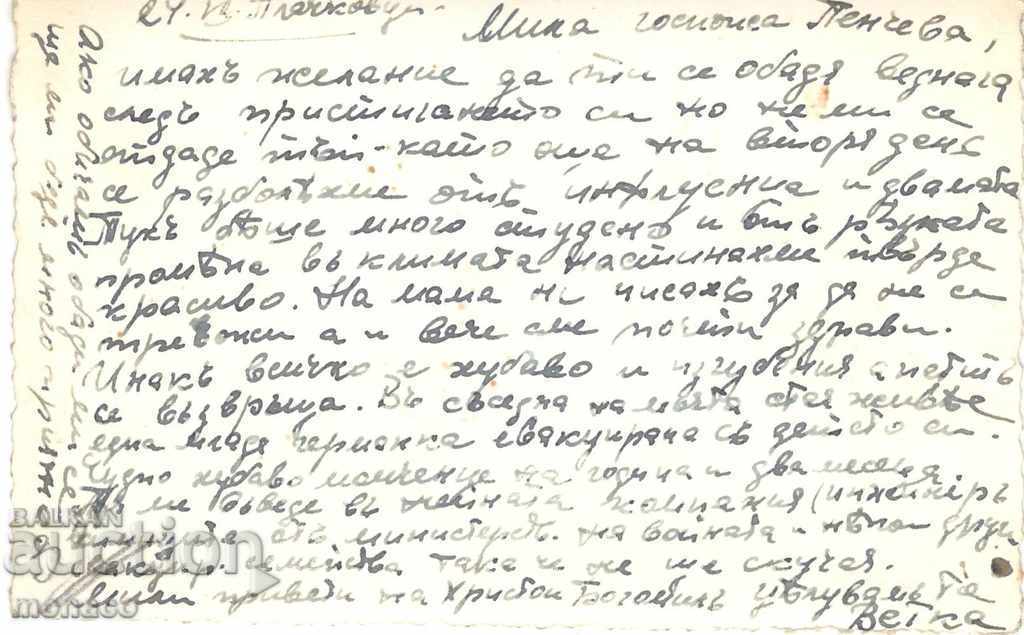 24. VI. Плачковци.
Мила госпожа Пенчева,
имахъ желание да ти се обадя веднага
следъ пристигането си но не ми се
отдаде тъй-като още на вторя день
се разболѣхме отъ инфлуенца и двамата
Тукъ бѣше много студено и отъ рѣзката
промѣна въ климата настинахме твърде
красиво. На мама не писахъ за да не се
тревожи а и вече сме почти здрави.
Инакъ всичко е хубаво и изгубения апетитъ
се възвръща. Въ съседна на моята стая живѣе
една млада германка евакуирана съ детето си.
Чудно хубаво момченце на година и два месеца.
Тя ме въведе въ нейната компания (инжинеръ
отъ министерств. на войната и нѣкои други
евакуир. семейства така че не ще скучая.
Мили привети на Христо и Богомилъ Цѣлувамъ Те
Ветка
Ако обичашъ обади ми се
ще ми бѫде много приятно
BALKAN
auction
monaco